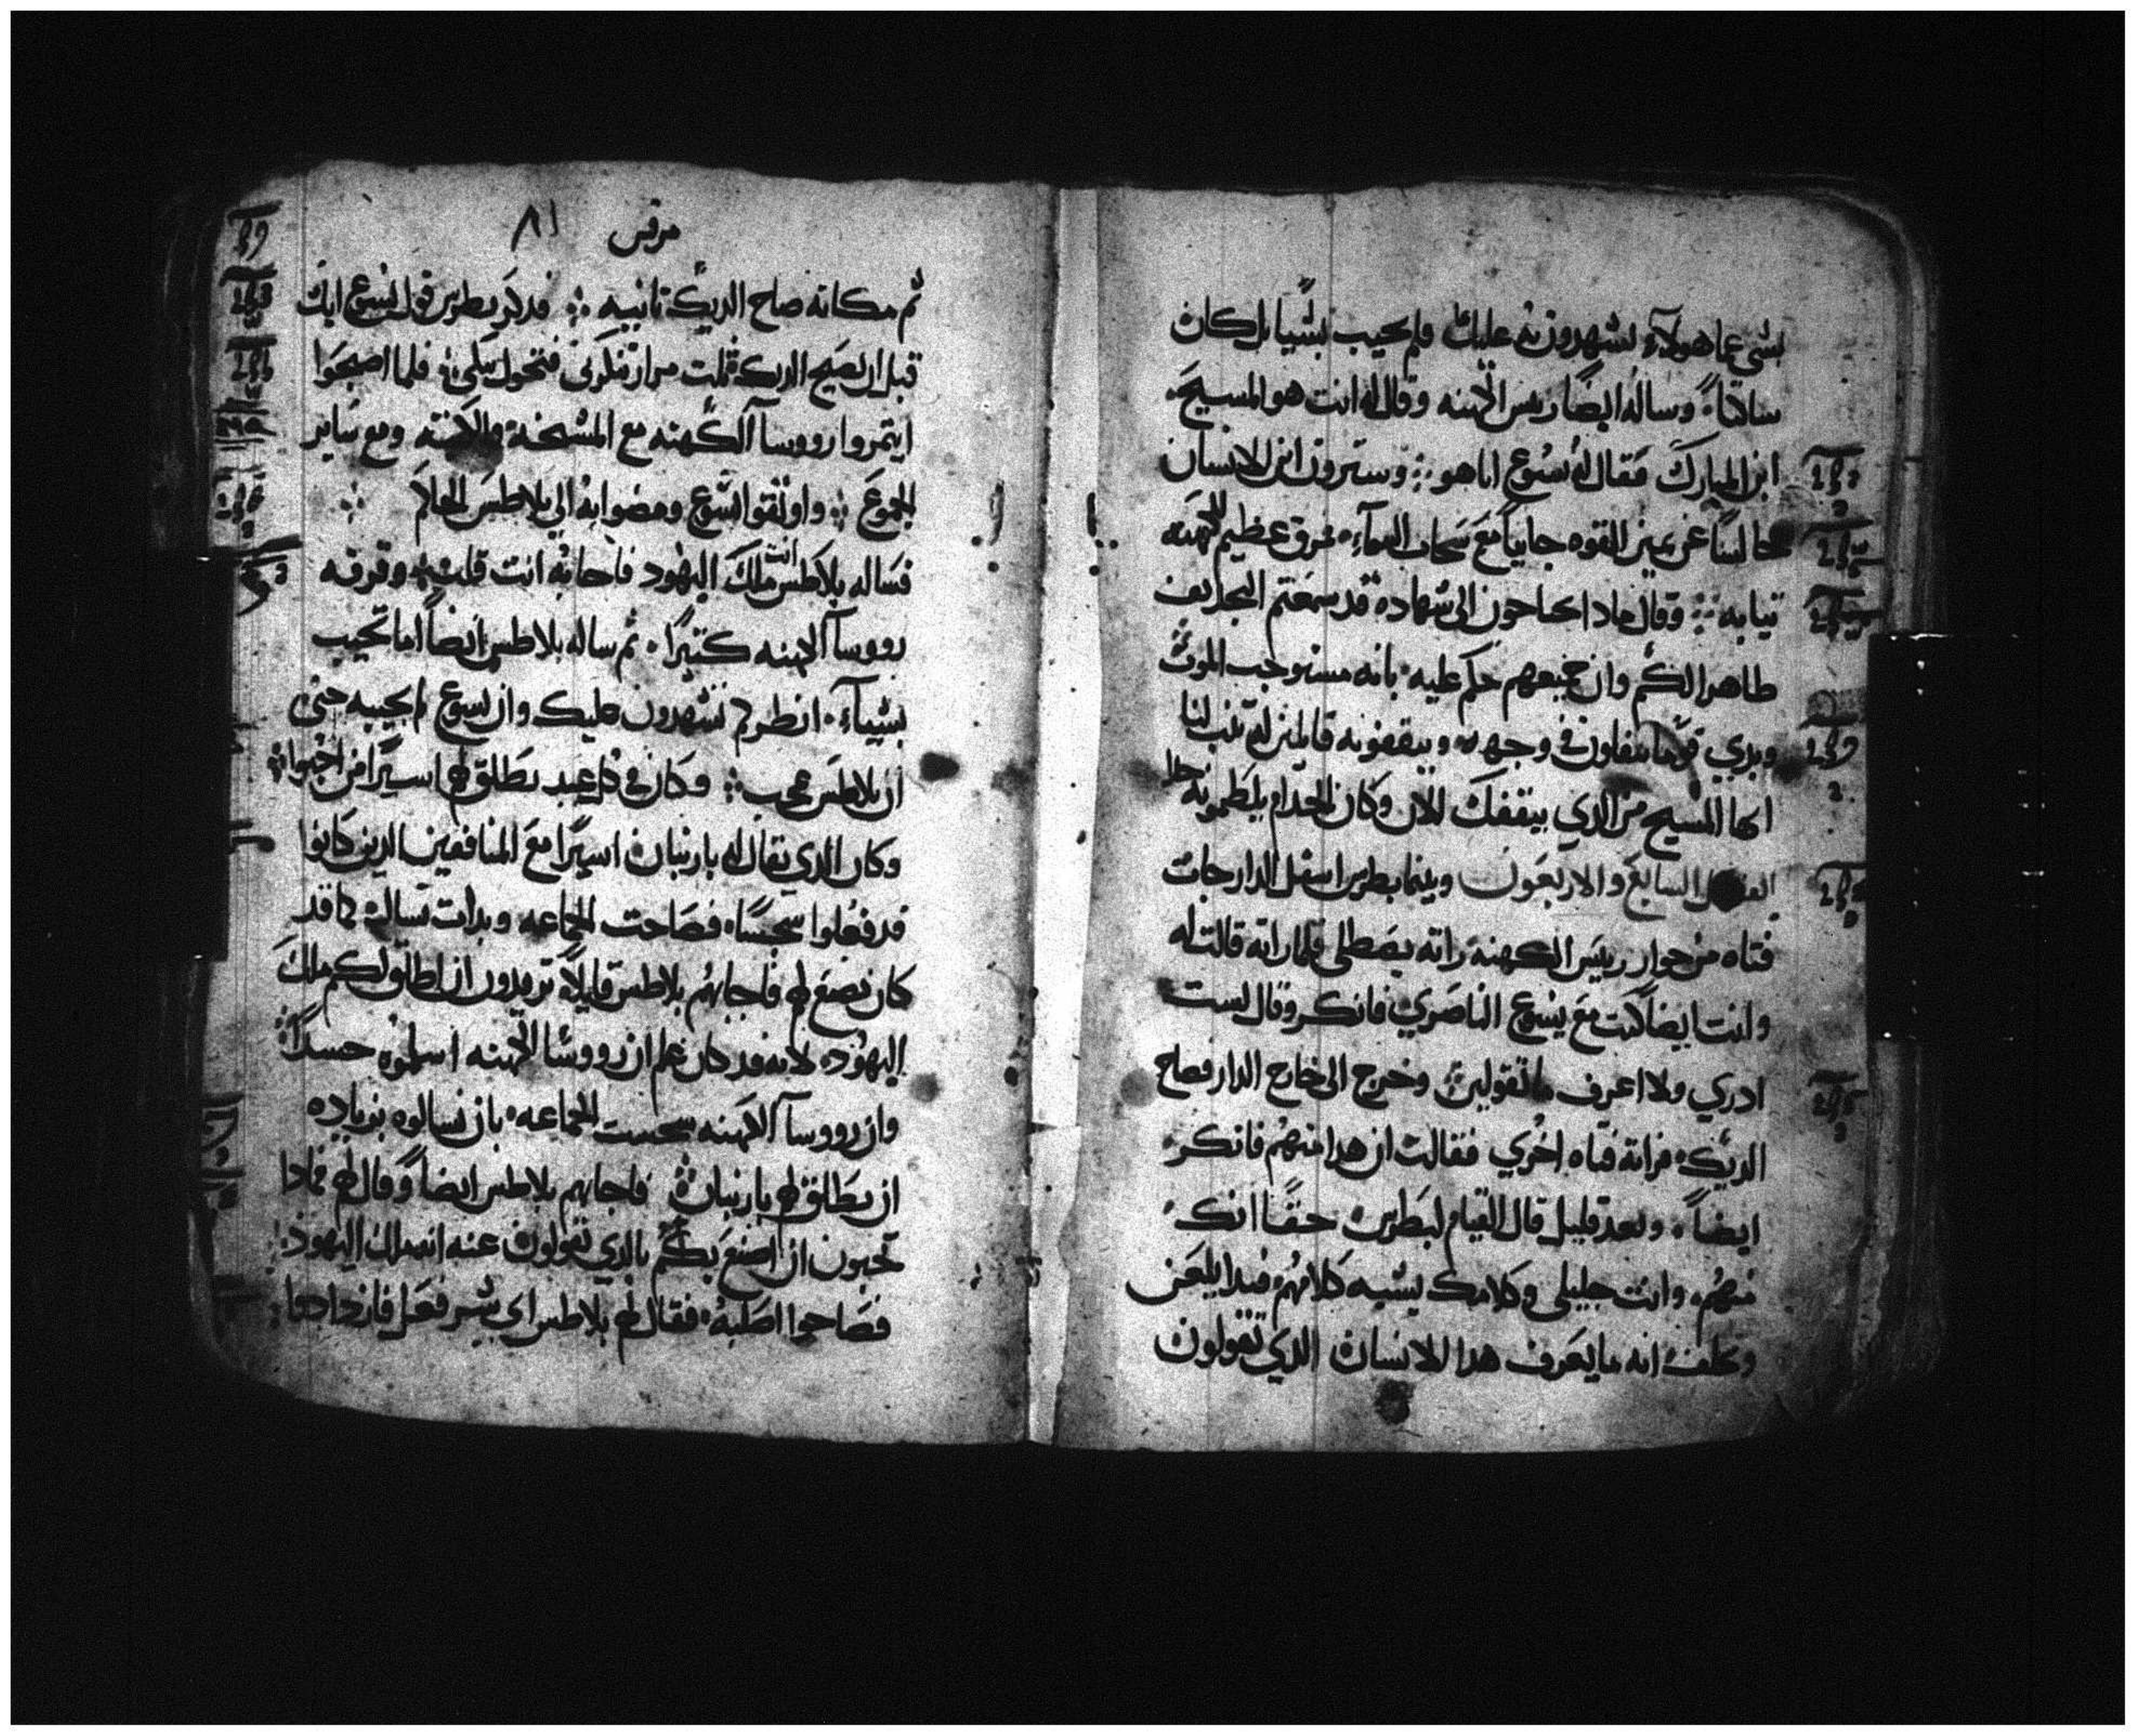 بشي عما هولآء يشهدون به عليك فلم يجيب بشيا بل كان
ساكتاً وساله ايضاً ريس الكهنه وقال له انت هو المسيح
ابن المبارك فقال له يسوع انا هو ܀ وسترون ابن الانسان
جالساً عن يمين القوه جاياً مع سحاب السمآء فمزق عظيم الكهنه
تيابه ܀ وقال مادا تحتاجون الى شهاده قد سمعتم التجديف
ظاهرا لكم وان جميعهم حكم عليه بانه مستوجب الموت
وبدي قوماً يتفلون في وجهه ويبقفونه قايلين له تنبا لنا
ايها المسيح من الدي يبقفك الان وكان الخدام يلطمونه
الفصل السابع والاربعون وبينما بطرس اسفل الدار جات
فتاه من جوار رييس الكهنة راته يصطلي فلما راته قالت له
وانت ايضاً كنت مع يسوع الناصري فانكر وقال لست
ادري ولا اعرف ما تقولين وخرج الى خارج الدار فصاح
الديك فراته فتاه اخري فقالت ان هدا منهم فانكر
ايضاً وبعد قليل قال القيام لبطرس حقاً انك
منهم وانت جليلي وكلامك يشبه كلامهم فبدا يلعن
ويحلف انه ما يعرف هدا الانسان الدي تقولون
مرقس ٨١
ثم مكانه صاح الديك تانييه ܀ فدكر بطرس قول يسوع انك
قبل ان يصيح الديك تلت مرار تنكرني فتحول يبكي فلما اصبحوا
ايتمروا رووسآ الكهنه مع المشيخة والكهنه ومع ساير
الجموع ܀ واوتقوا يسوع ومضوا به الي بلاطس الحاكم
فساله بلاطس انت ملك اليهود فاجابه انت قلت وقرفه
رووسآ الكهنه كتيراً ثم ساله بلاطس ايضاً اما تجيب
بشياً انظر كم يشهدون عليك وان يسوع لم يجيبه حتى
ان بلاطس عجب ܀ وكان في كل عيد يطلق لهم اسيراً من احبوا
وكان الدي يقال له بارنبان اسيراً مع المنافقين الدين كانوا
قد فعلوا سجساً فصاحت الجماعه وبدات تساله كما قد
كان يصنع لهم فاجابهم بلاطس قايلاً تريدون ان اطلق لكم ملك
اليهود لانه قد كان علم ان رووسا الكهنه اسلموه حسداً
وان رووسآ الكهنه سجست الجماعه بان يسالوه بزياده
ان يطلق لهم بارنبان فاجابهم بلاطس ايضاً وقال لهم فمادا
تحبون ان اصنع بكم بالدي تقولون عنه انه ملك اليهود
فصاحوا اصلبه فقال لهم بلاطس اي شر فعل فازدادوا